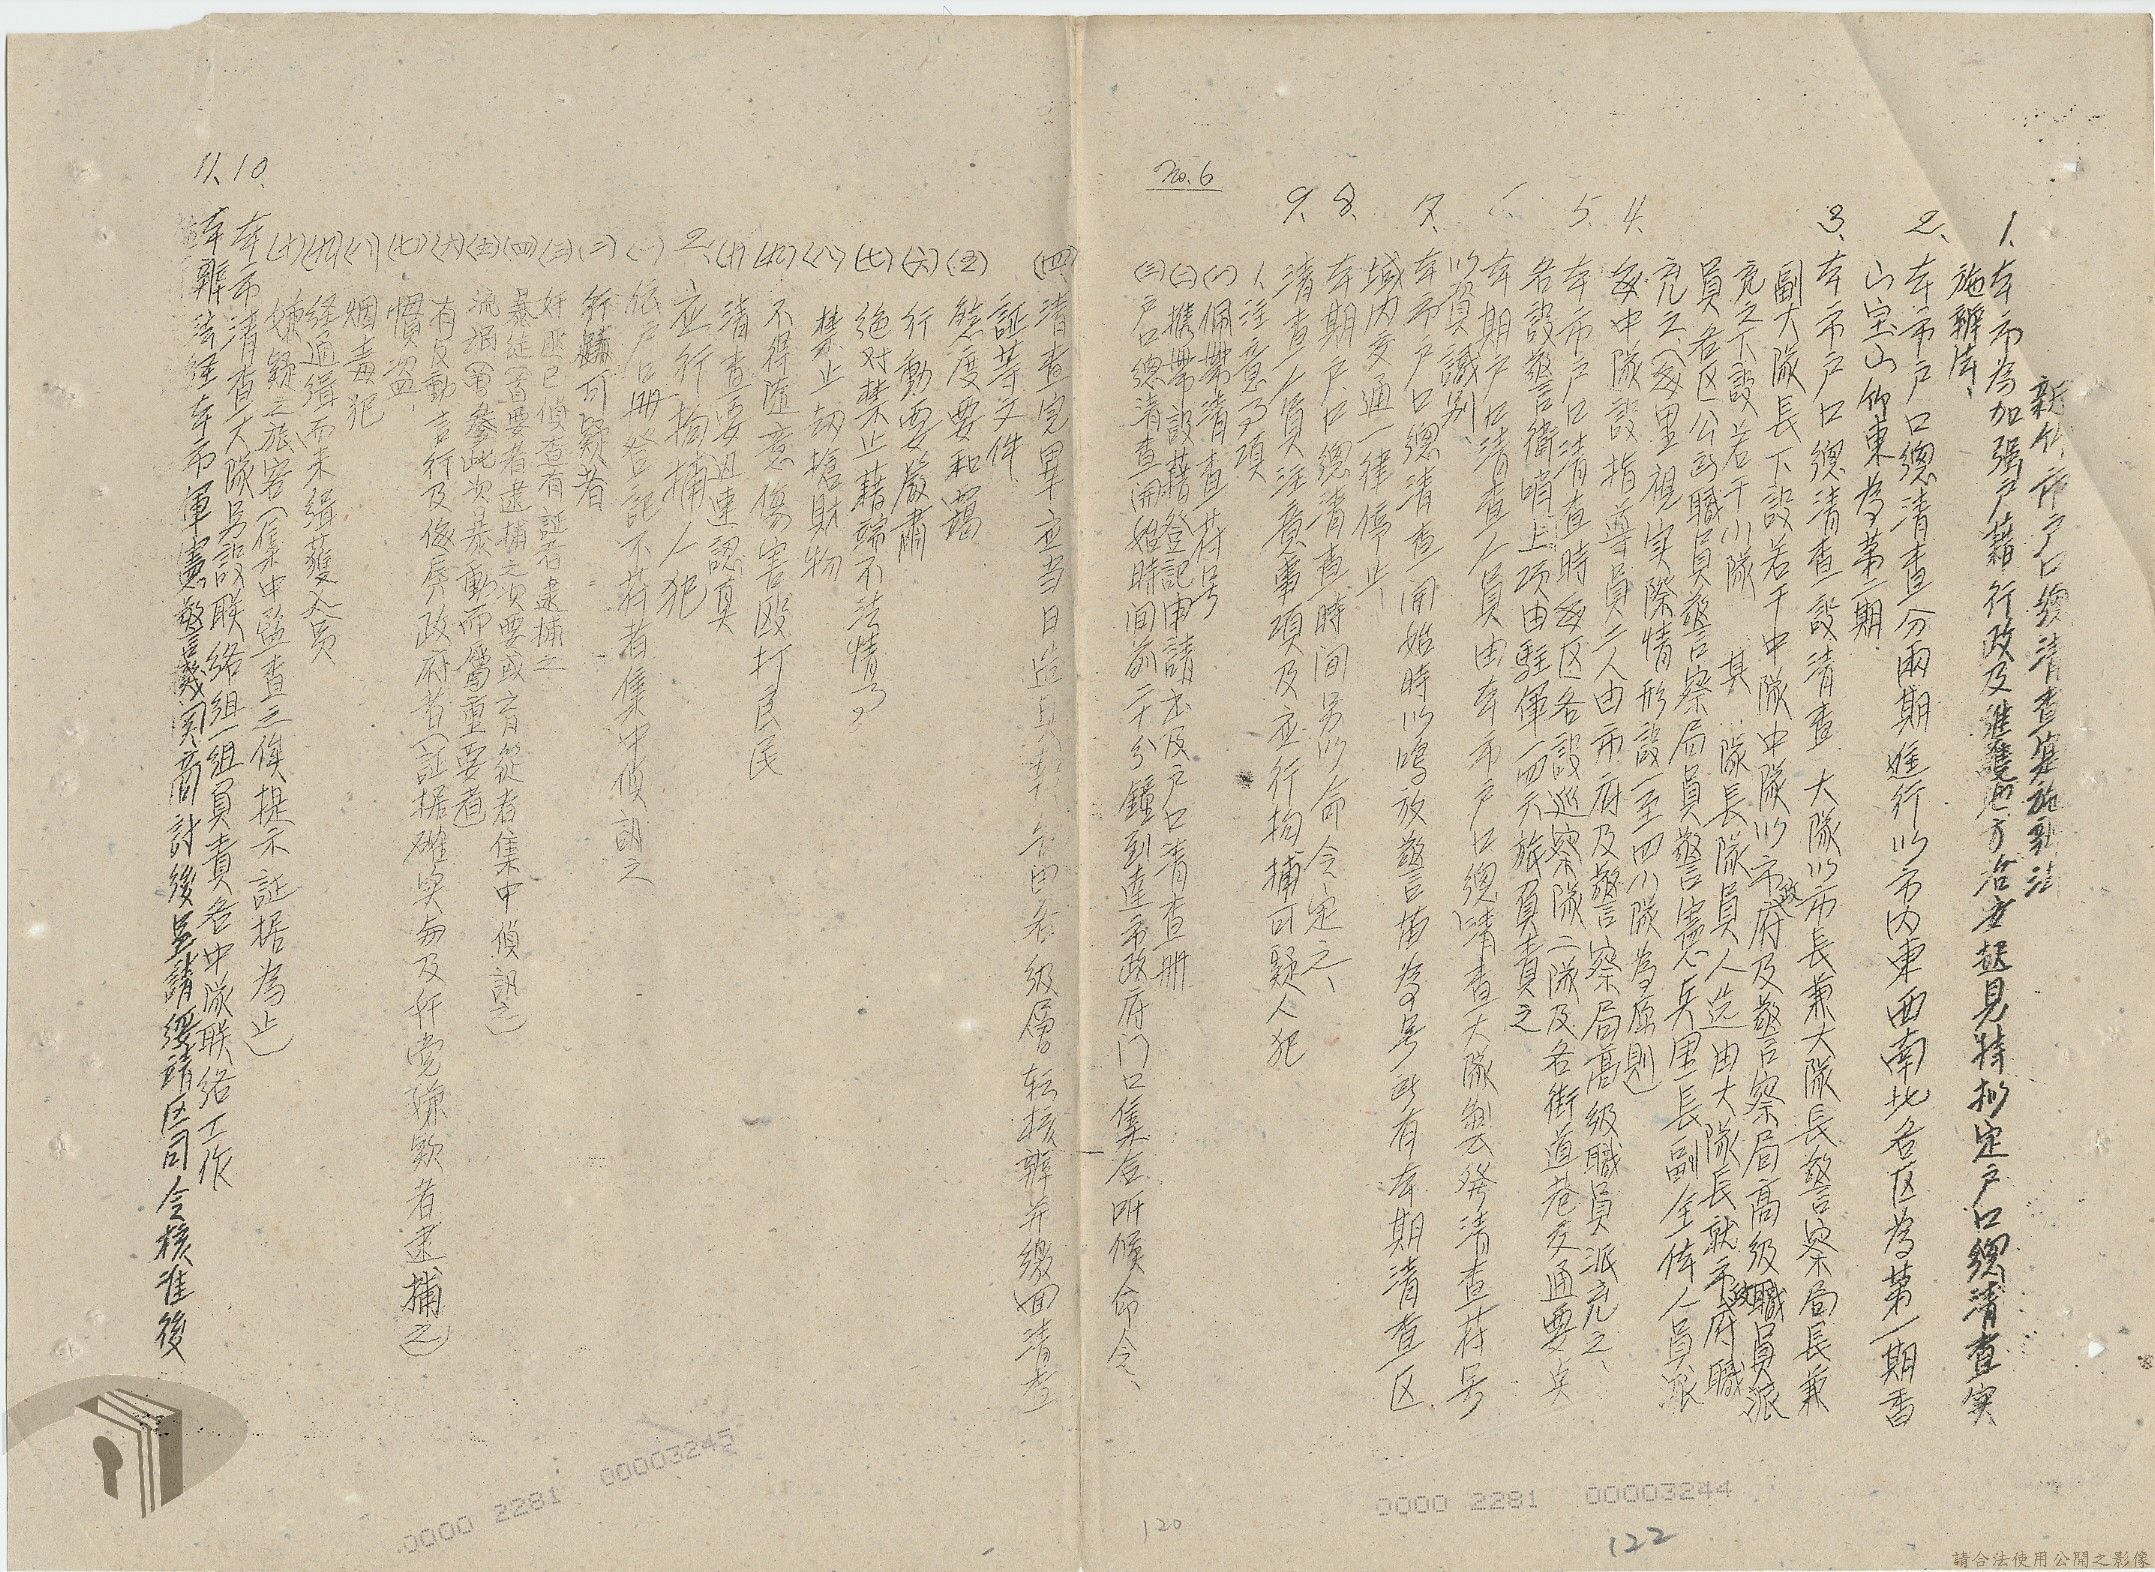 新竹市戶口總清查實施辦法
1、本市為加强戶籍行政及準雙地方治安起見特拟定戶口總清查実
施辦法、
2、本市戶口總清查分兩期進行以市內東西南北各区為第一期香
山宝山竹東為第二期
3、本市戶口總清查設清查大隊以市長兼大隊長警察局長兼
副大隊長下設若干中隊中隊以市政府及警察局高级職員派
充之下設若干小隊其隊長隊員人选由大隊長就市政府職
員各区公所職員警察局員警憲兵里長副全体人員派
充之(每里視実際情形設一至四小隊為原則)
4、每中隊設指導員二人由市府及警察局高级職員派充之、
5、本市戶口清查時每区各設巡察隊一隊及各街道巷交通要点
各設警衛哨上項由駐軍一四六旅負責之
6、本期戶口清查人員由本市戶口總清查大隊製發清查符号
以資識别、
7、本市戶口總清查開始時以鳴放警笛為号所有本期清查区
域内交通一律停止、
8、本期戶口總清查時间另以命令定之、
9、清查人員注意事項及应行拘捕可疑人犯
1、注意事項
(一)佩帶清查符号
(二)携帶設籍登記申請书及戶口清查册
(三)戶口總清查開始時间前二十分鐘到達市政府门口集合听候命令、
No.6
(四)清查完畢应当日造具報告由各级層転核辦并繳回清查
証等文件
(五)態度要和藹
(六)行動要嚴肅
(七)绝对禁止藉端不法情事
(八)禁止刼搶財物
(九)不得隨意傷害殴打民民
(十)清查要迅速認真
2、应行拘捕人犯
(一)依戶口册登記不符者集中偵訊之
(二)行蹟可疑者
(三)奸匪已偵查有証者逮捕之
(四)暴徒(首要者逮捕之次要或盲從者集中偵訊之)
(五)流氓(曾參此次暴動而屬重要者)
(六)有反動言行及侮辱政府者(証据確実与及奸党嫌疑者逮捕之)
(七)慣盗
(八)烟毒犯
(九)经通缉而未缉獲人员
(十)嫌疑之旅客(集中監查之俟提示証据為止)
10、本市清查大隊另設联络组一组員責各中隊联络工作
11、本辦法经本市軍憲警機関商討後呈請綏靖区司令核准後
0000 2281 00003245
0000 2281 00003244
120
122
請合法使用公開之影像